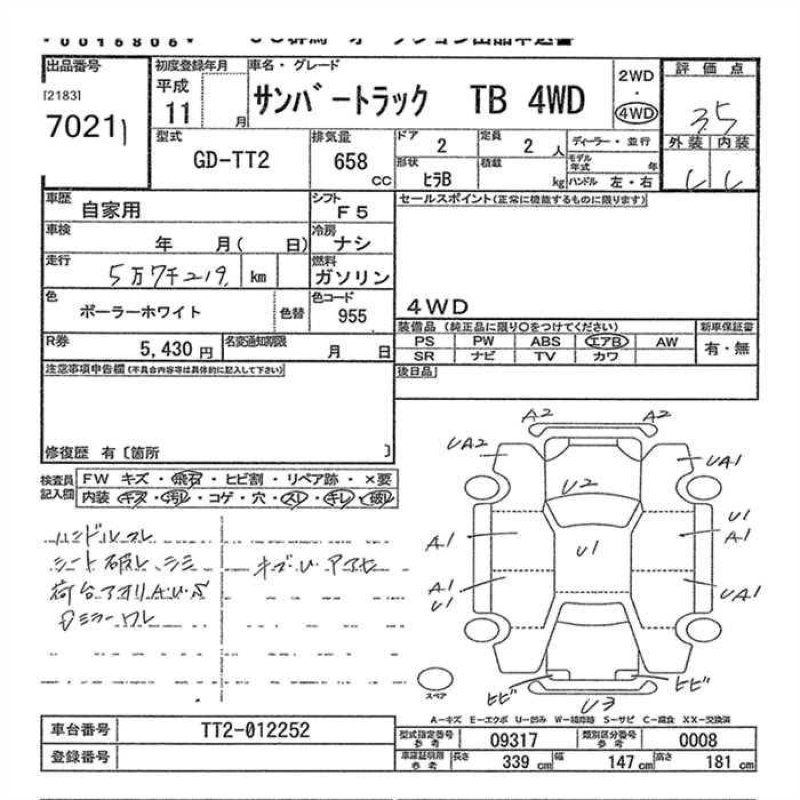 0016806
出品番号
[2183]
70211
初度登録年月
平成
11 月
車名・グレード
サンバートラック TB 4WD
2WD
・
4WD
評価点
3.5
外装 内装
型式
GD-TT2
排気量
658 cc
ドア 2
定員 2 人
ディーラー・並行
形状 ヒラB
積載 kg
モデル年式 年
ハンドル 左・右
車歴
自家用
シフト
F5
車検
年 月( 日)
冷房
ナシ
走行
5万7千219 km
燃料
ガソリン
色
ポーラーホワイト
色替
色コード
955
R券
5,430 円
名変通知期限
月 日
セールスポイント(正常に機能するものに限ります)
4WD
装備品 (純正品に限り○をつけてください)
新車保証書
PS PW ABS エアB AW
有・無
SR ナビ TV カワ
後日品
注意事項申告欄(不具合内容等は具体的に記入して下さい)
修復歴 有〔箇所 〕
検査員記入欄
FW キズ・飛石・ヒビ割・リペア跡・×要
内装 キズ・汚レ・コゲ・穴・スレ・キレ・破レ
ハンドルスレ
シート破レ、シミ
荷台アオリA・U・S
Dミラーワレ
キズ・U・アアセ
A2 A2
UA2 UA1
U2
U1
A1
U1
A1
A1
U1
UA1
ヒビ ヒビ
U3
スペア
A-キズ E-エクボ U-凹み W-補修跡 S-サビ C-腐食 XX-交換済
車台番号
TT2-012252
登録番号
型式指定番号
参考
09317
類別区分番号
参考
0008
車庫証明用
参考
長さ 339 cm 幅 147 cm 高さ 181 cm